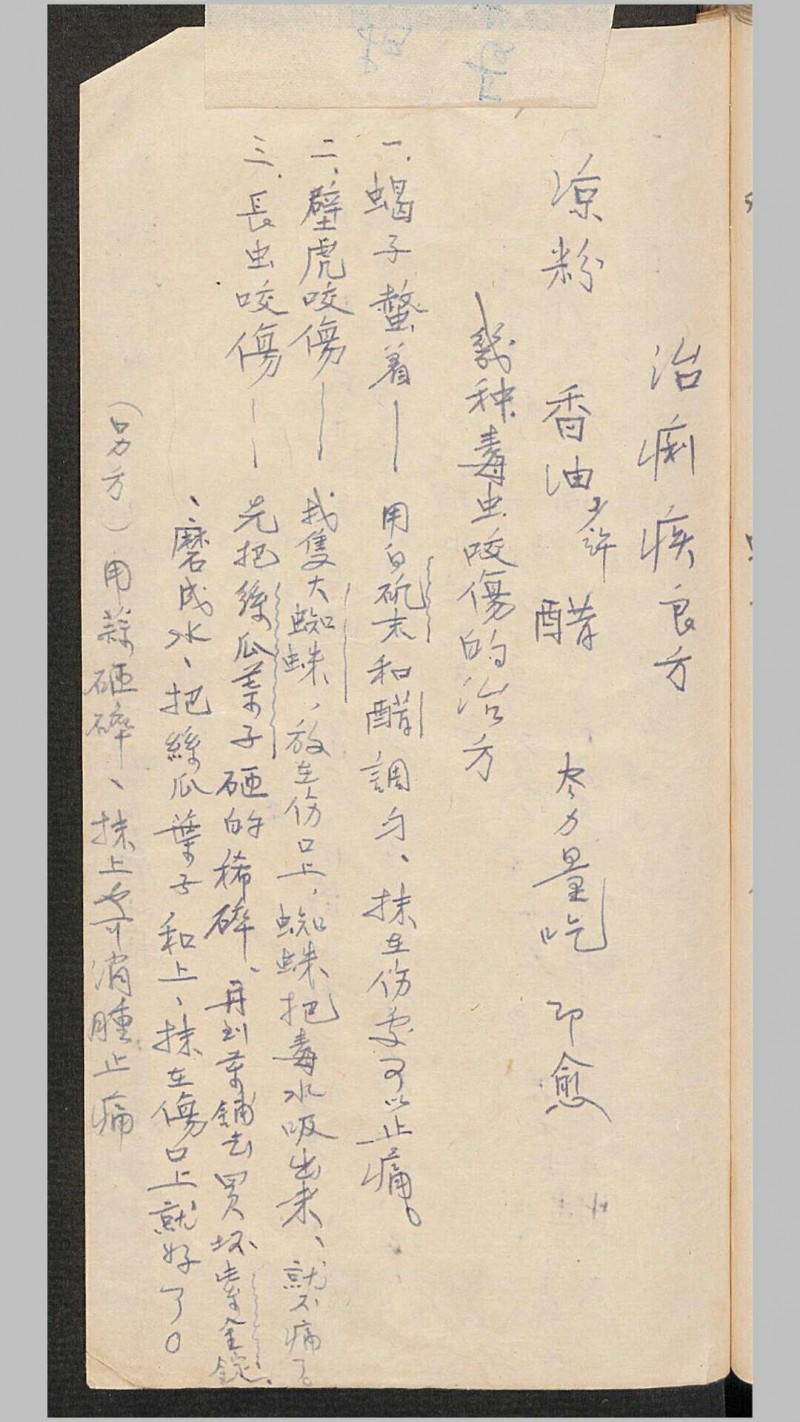 治痢疾良方
凉粉 香油少許 醋 尽力量吃 即愈
幾种毒虫咬傷的治方
一、蝎子螫着——用白矾末和醋調匀、抹在伤處可以止痛。
二、壁虎咬傷——找隻大蜘蛛、放在伤口上，蜘蛛把毒水吸出来、就不痛了。
三、長虫咬傷——先把絲瓜葉子砸的稀碎、再到葯鋪去買坏紫金錠。
、磨成水、把絲瓜葉子和上、抹在傷口上就好了。
（另方）用蒜砸碎、抹上也可消腫止痛